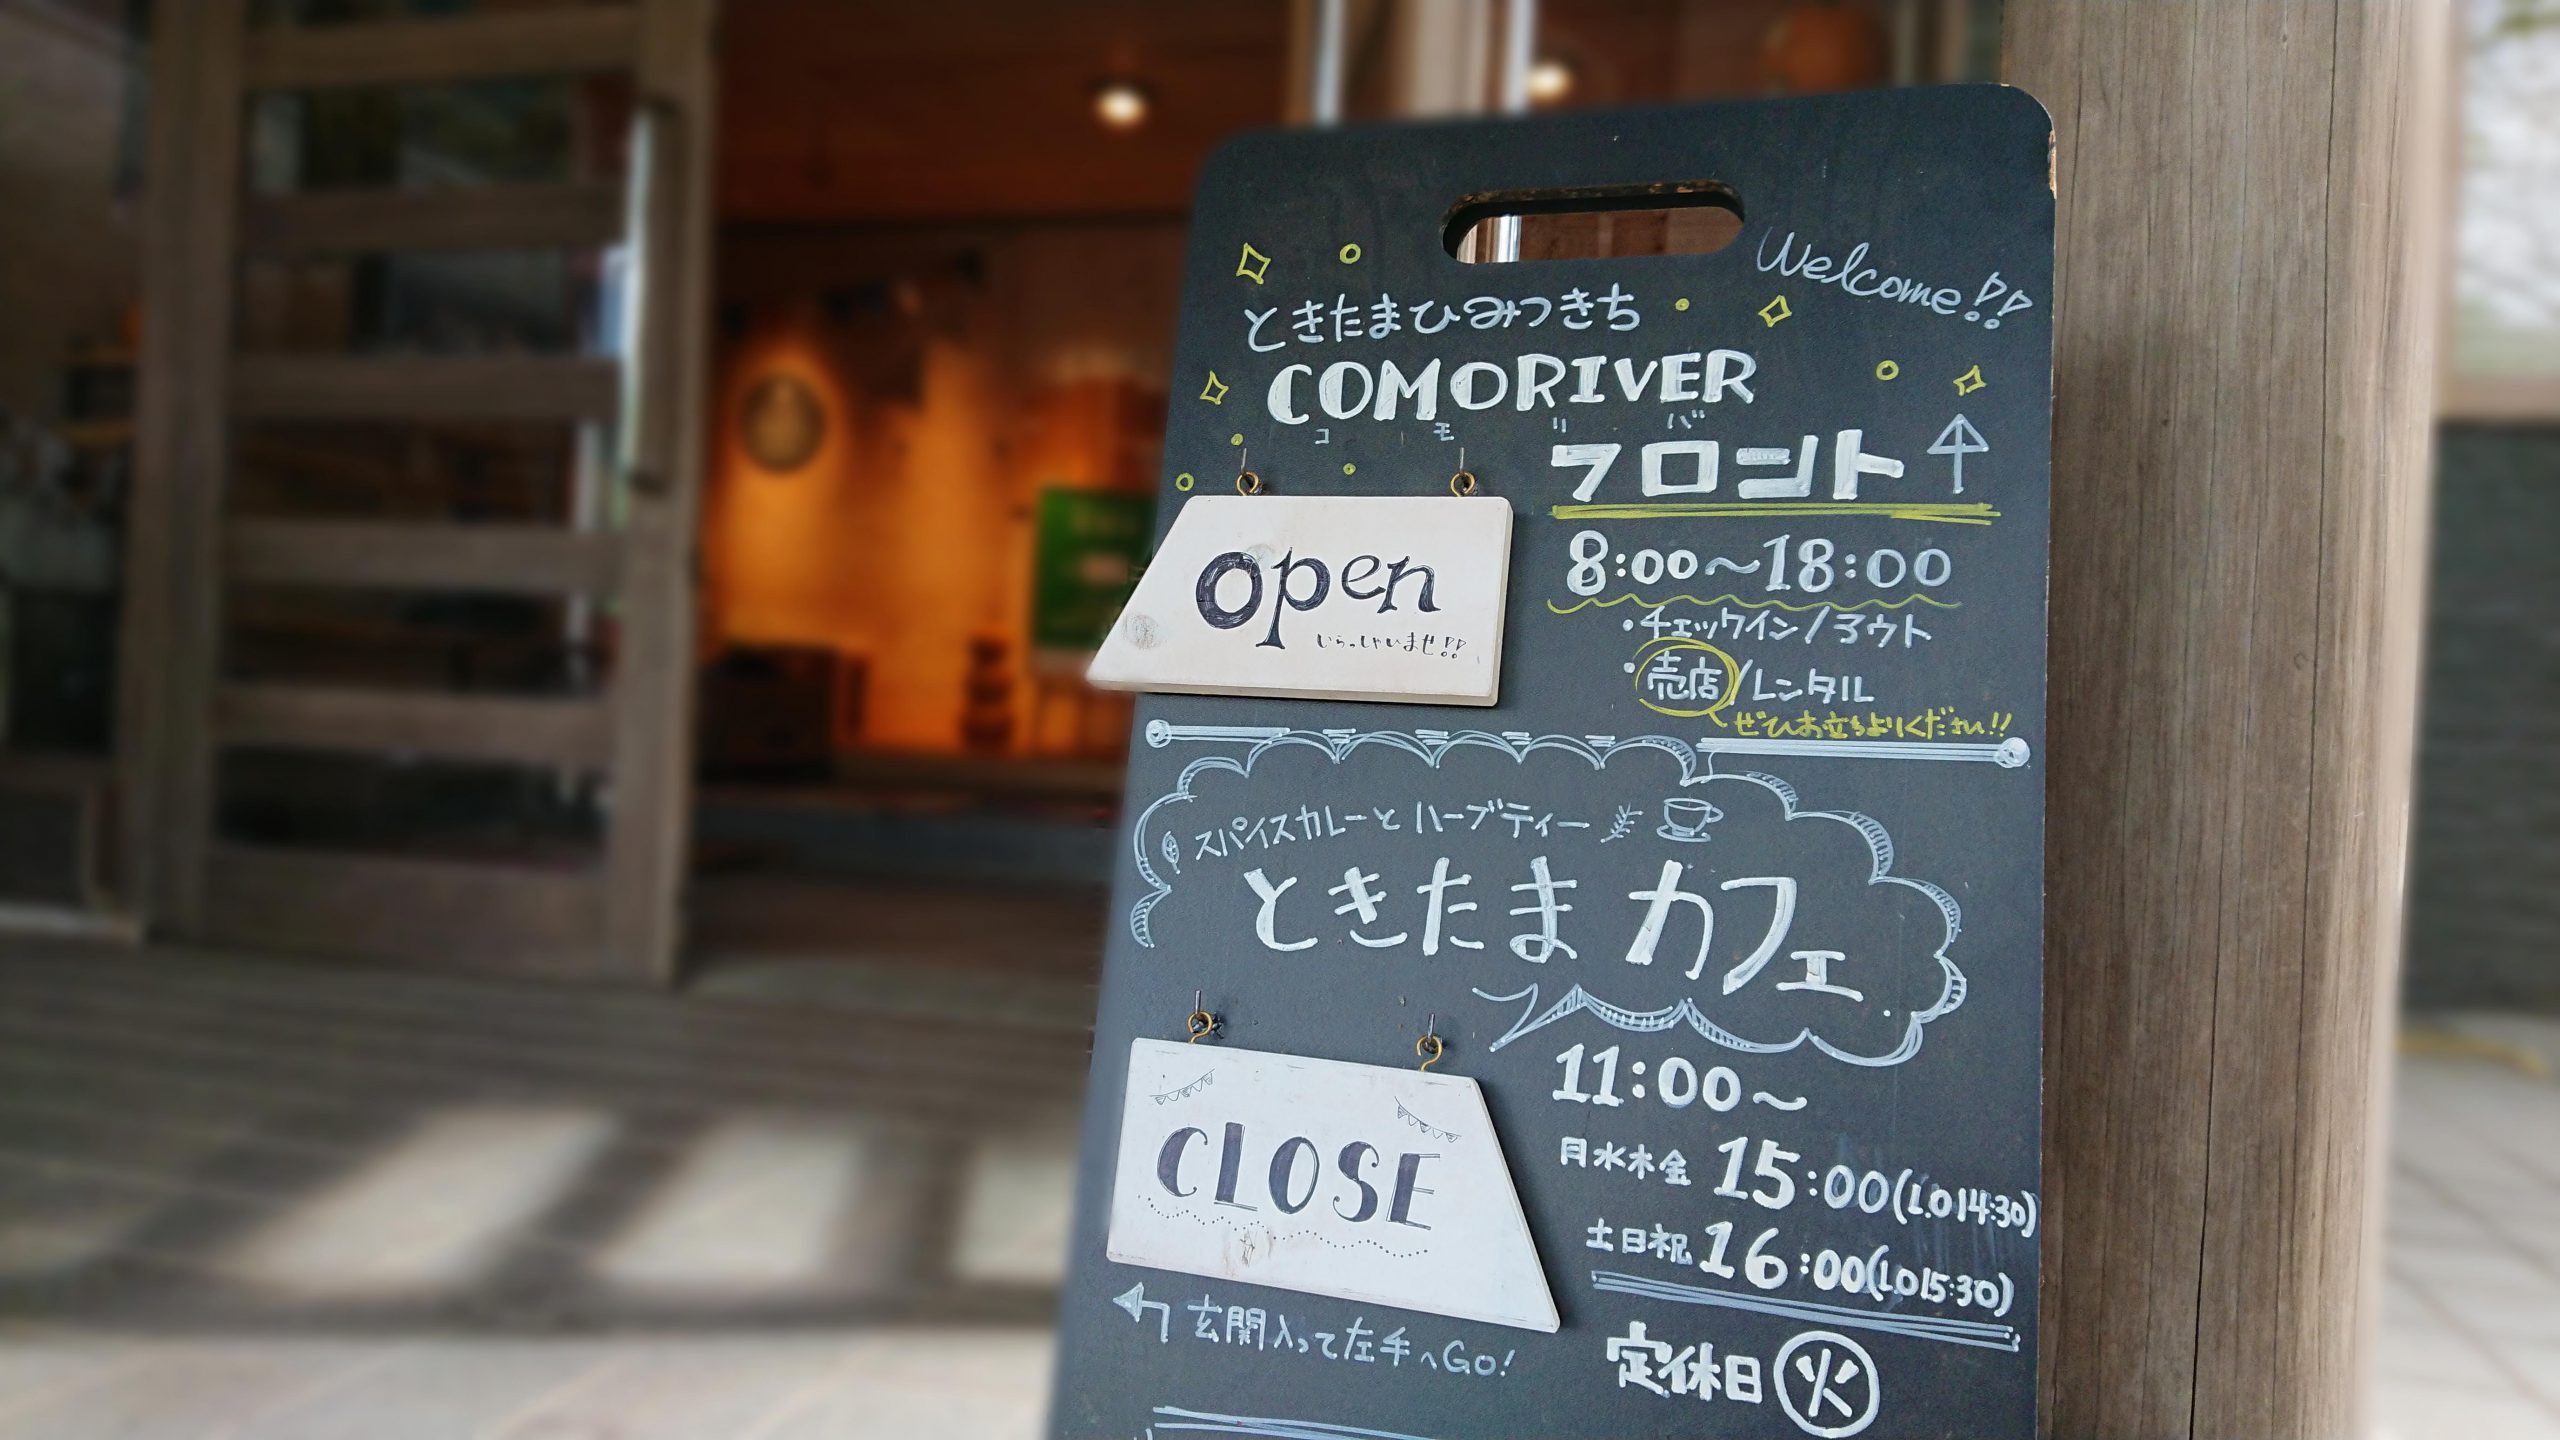 Welcome!!
ときたまひみつきち
COMORIVER
コモリバ
フロント
open
いらっしゃいませ!!
8:00～18:00
・チェックイン/アウト
・売店/レンタル
ぜひお立ちよりください!!
スパイスカレーとハーブティー
ときたまカフェ
11:00～
月水木金 15:00(L.O14:30)
土日祝 16:00(L.O15:30)
CLOSE
定休日 火
玄関入って左手へGo!